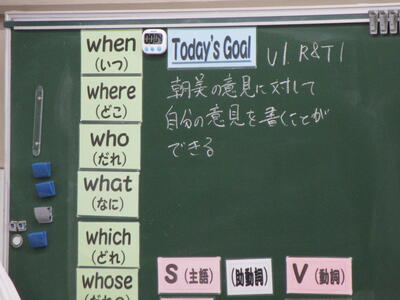 when
(いつ)
where
(どこ)
who
(だれ)
what
(なに)
which
(どれ)
whose
Today's Goal
U1. R&T1
朝美の意見に対して
自分の意見を書くことが
できる
S (主語)
(助動詞)
V (動詞)